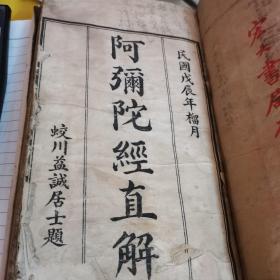 民國戊辰年榴月
阿彌陀經直解
蛟川益誠居士題